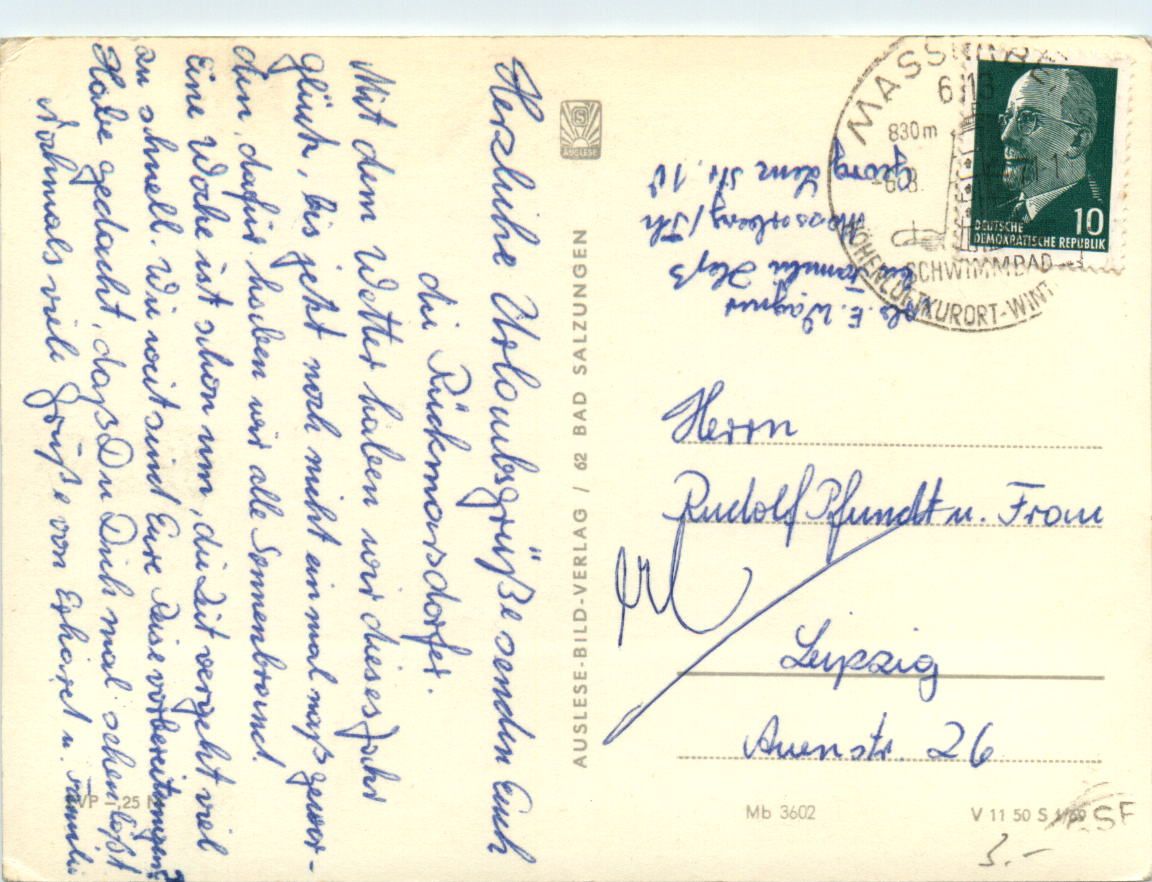 Herzliche Urlaubsgrüße senden Euch
die Rückmarsdorfer.
Mit dem Wetter haben wir dieses Jahr
Glück, bis jetzt noch nicht einmal naß gewor-
den, dafür haben wir alle Sonnenbrand.
Eine Woche ist schon um, die Zeit vergeht viel
zu schnell. Wie weit sind Eure Reisevorbereitungen?
Habe gedacht, daß Du Dich mal sehen läßt
Nochmals viele Grüße von Erhard u. Familie
EVP -,25 M
AUSLESE
AUSLESE-BILD-VERLAG / 62 BAD SALZUNGEN
MASSERBERG
830m
SCHWIMMBAD
HÖHENLUFTKURORT-WINT
DEUTSCHE
DEMOKRATISCHE REPUBLIK
10
Abs. E. Wagner
bei Familie Heß
Masserberg/Th
Herrn
Rudolf Pfundt u. Frau
Leipzig
Auenstr. 26
Mb 3602
V 11 50 S 1/69
3.-